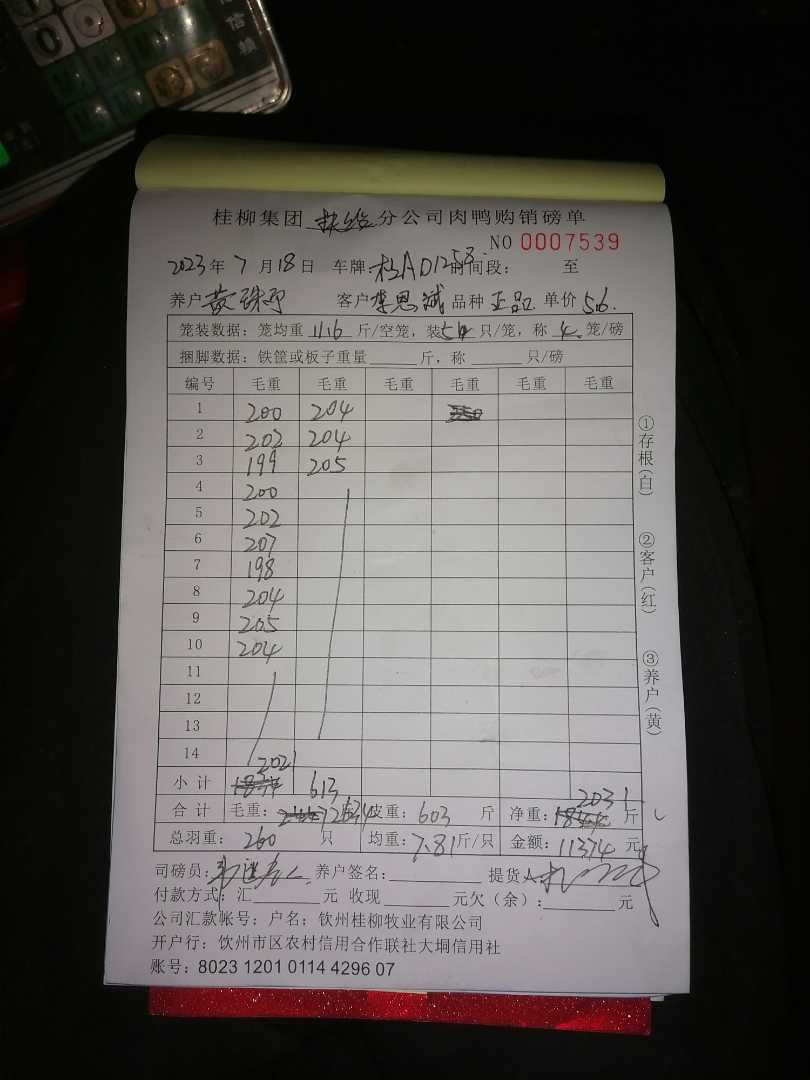 信赖
桂柳集团 分公司肉鸭购销磅单
NO 0007539
2023年7月18日 车牌:桂AD1258. 时间段: 至
养户 黄 客户 李思斌 品种 正品 单价 5.6.
笼装数据:笼均重 11.6 斤/空笼,装 5 只/笼,称 4 笼/磅
捆脚数据:铁筐或板子重量 斤,称 只/磅
编号 毛重 毛重 毛重 毛重 毛重 毛重
1 200 204
2 202 204
3 199 205
4 200
5 202
6 207
7 198
8 204
9 205
10 204
11
12
13
14
小计 2021 613
合计 毛重: 2634 皮重:603 斤 净重: 2031 斤
总羽重: 260 只 均重:7.81斤/只 金额:11374 元
司磅员: 养户签名: 提货人:
付款方式:汇 元 收现 元欠(余): 元
公司汇款帐号:户名:钦州桂柳牧业有限公司
开户行:钦州市区农村信用合作联社大垌信用社
账号:8023 1201 0114 4296 07
①存根(白)
②客户(红)
③养户(黄)